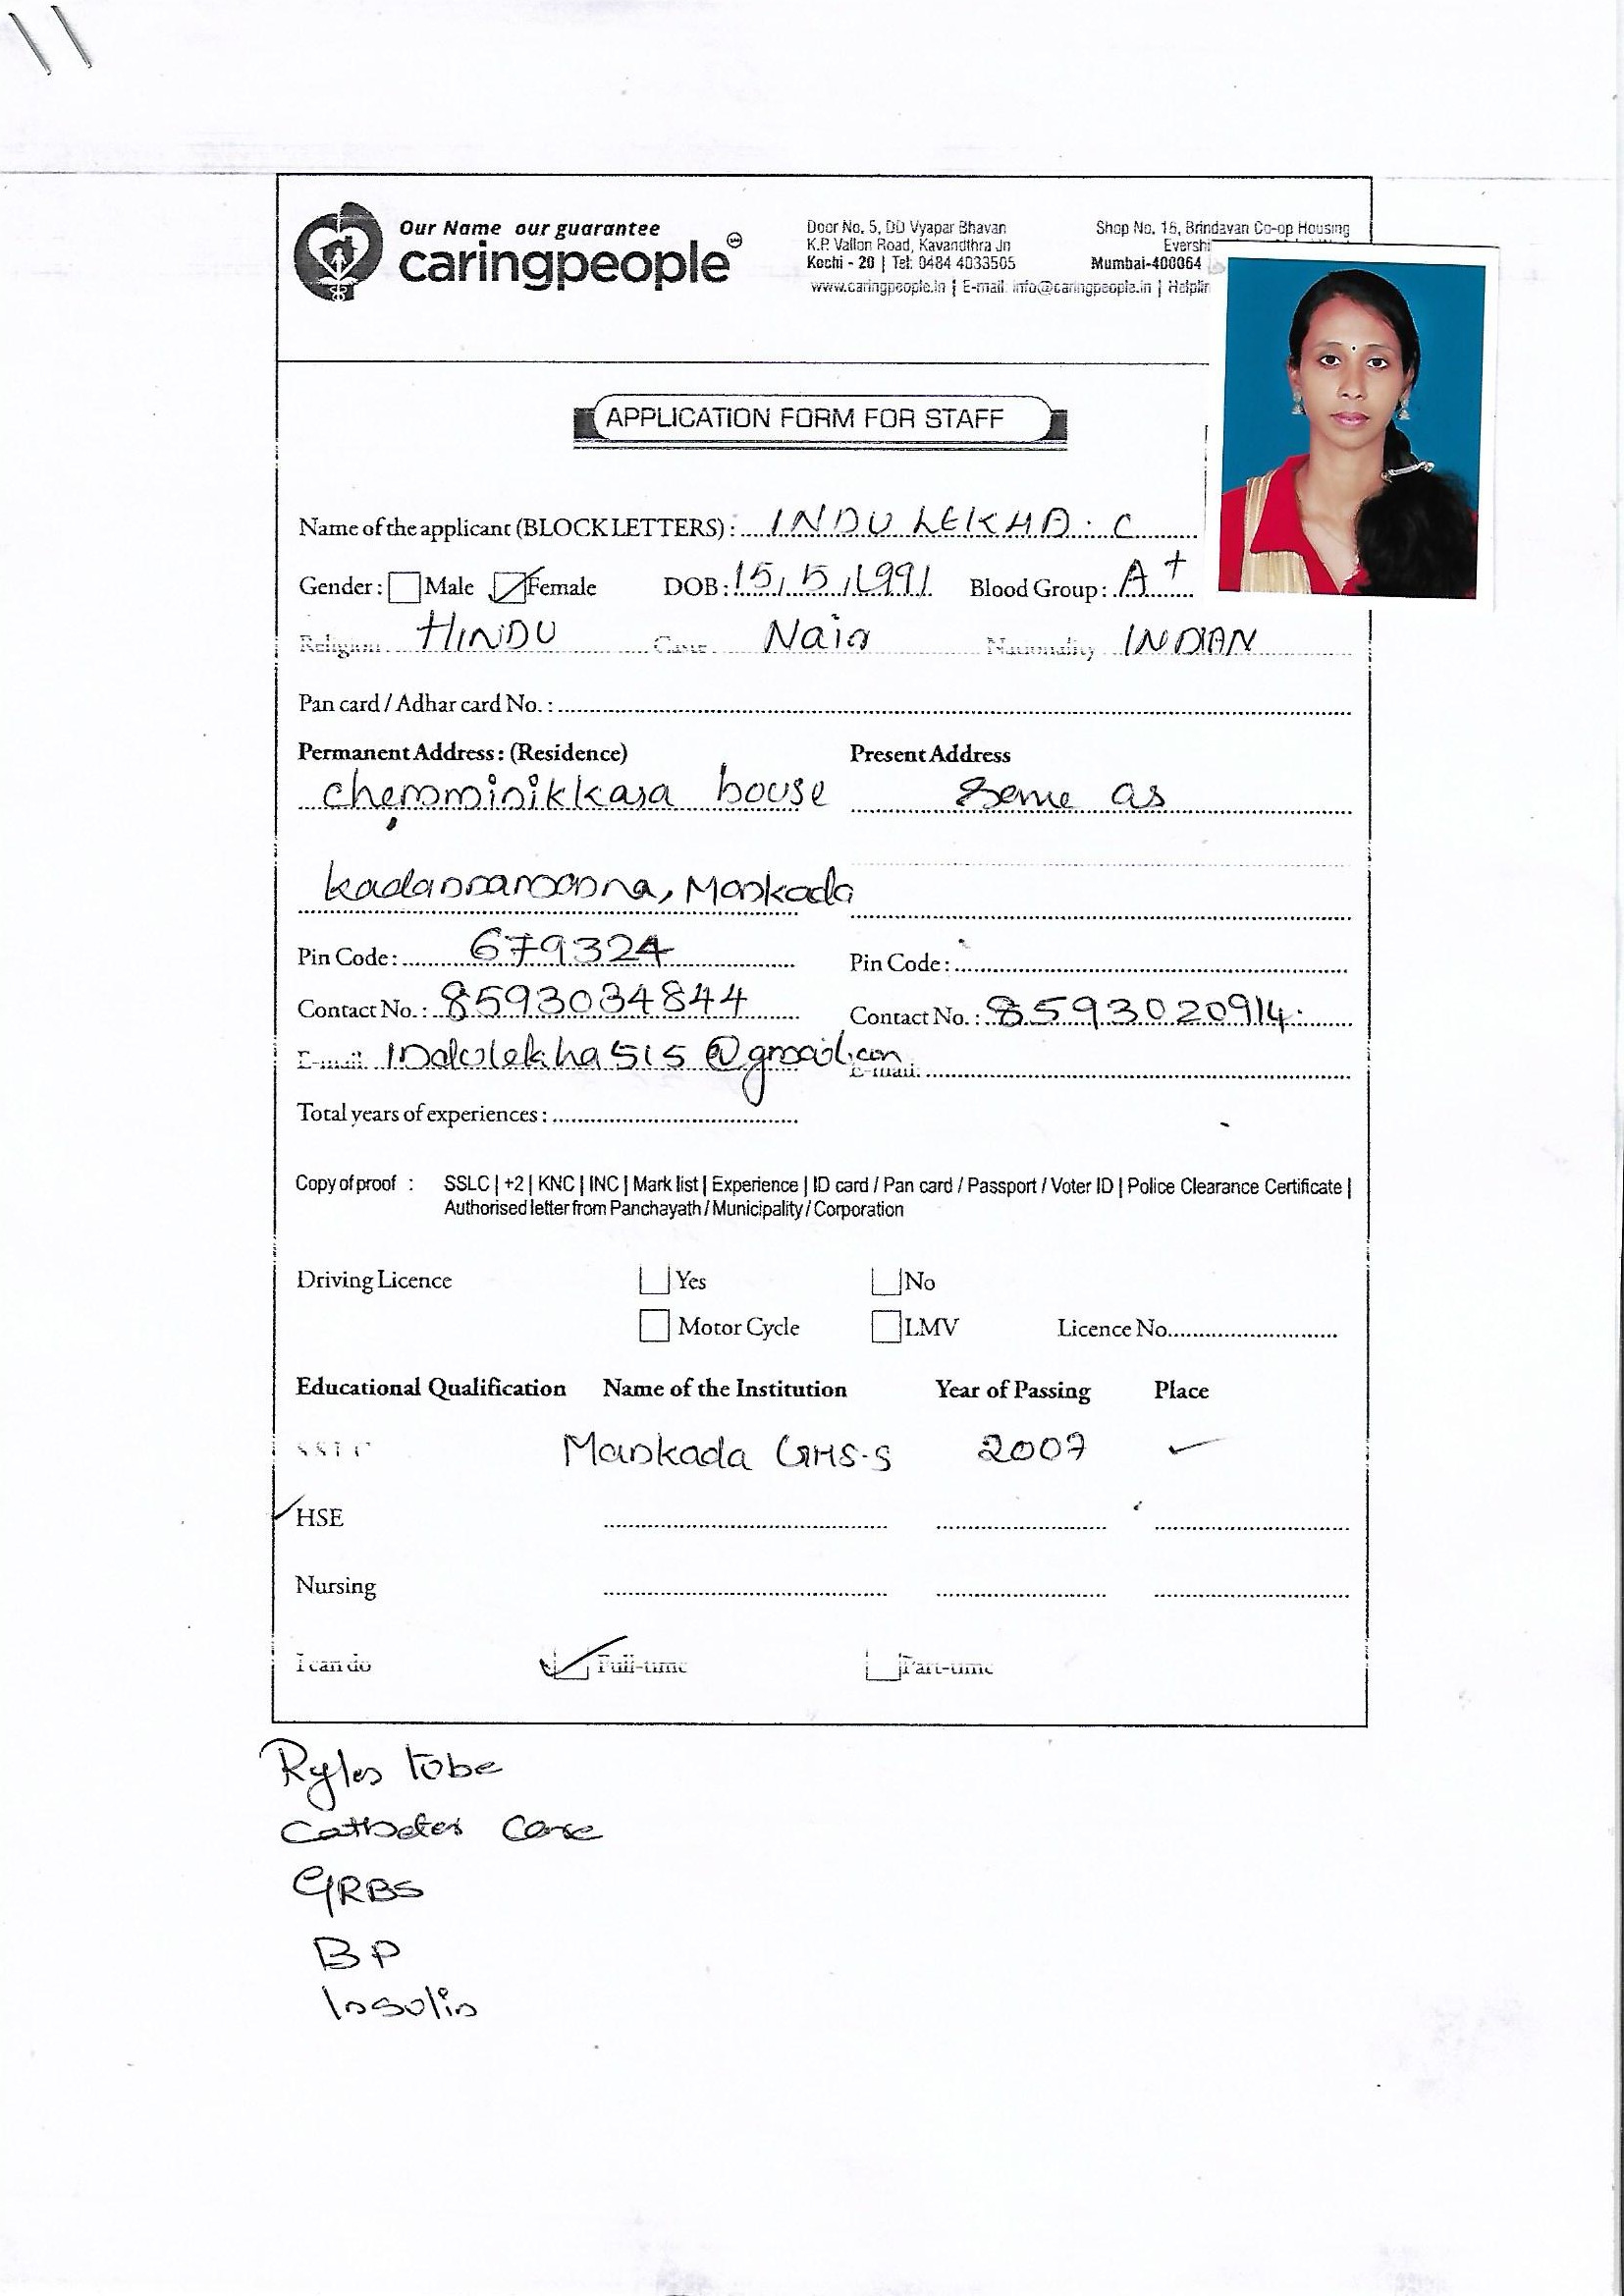 Our Name our guarantee
caringpeople SM
Door No. 5, DD Vyapar Bhavan
K.P. Vallon Road, Kavandthra Jn
Kochi - 20 | Tel: 0484 4033505
Shop No. 16, Brindavan Co-op Housing
Evershi
Mumbai-400064
www.caringpeople.in | E-mail. info@caringpeople.in | Helplin
APPLICATION FORM FOR STAFF
Name of the applicant (BLOCK LETTERS) : INDU LEKHA . C
Gender : Male Female DOB : 15, 5, 1991 Blood Group : A+
Religion HINDU Caste Nair Nationality INDIAN
Pan card / Adhar card No. :
Permanent Address : (Residence) Present Address
chemminikkara house Seme as
kadannamanna, Mankada
Pin Code : 679324 Pin Code :
Contact No. : 8593034844 Contact No. : 8593020914
E-mail Indulekha515@gmail.com E-mail.
Total years of experiences :
Copy of proof : SSLC | +2 | KNC | INC | Mark list | Experience | ID card / Pan card / Passport / Voter ID | Police Clearance Certificate |
Authorised letter from Panchayath / Municipality / Corporation
Driving Licence Yes No
Motor Cycle LMV Licence No.
Educational Qualification Name of the Institution Year of Passing Place
SSLC Mankada GHS.S 2007
HSE
Nursing
I can do Full-time Part-time
Ryles tube
Catheter Care
GRBS
BP
Insulin